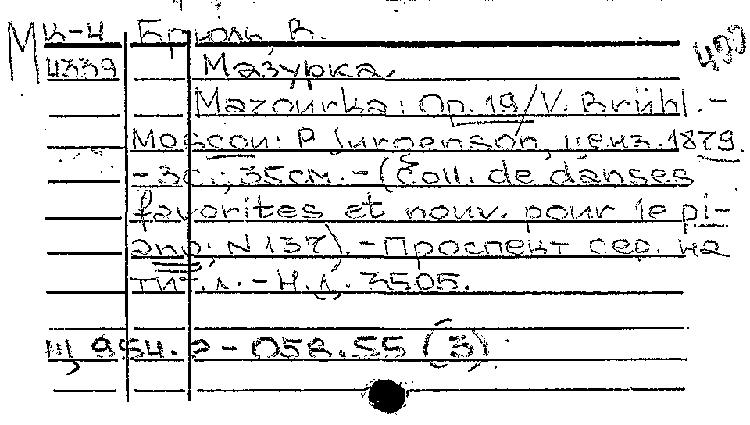 М К-4 Брюль, В.
4339 Мазурка.
Mazourka: Op. 19/V. Brühl. -
Moscou: P. Jurgenson, ценз. 1879.
- 3с.; 35см. - (Coll. de danses
favorites et nouv. pour le pi-
ano; N 137). - Проспект сер. на
тит. л. - Н.д. 3505.
Ш 954. - 058.55 (3)